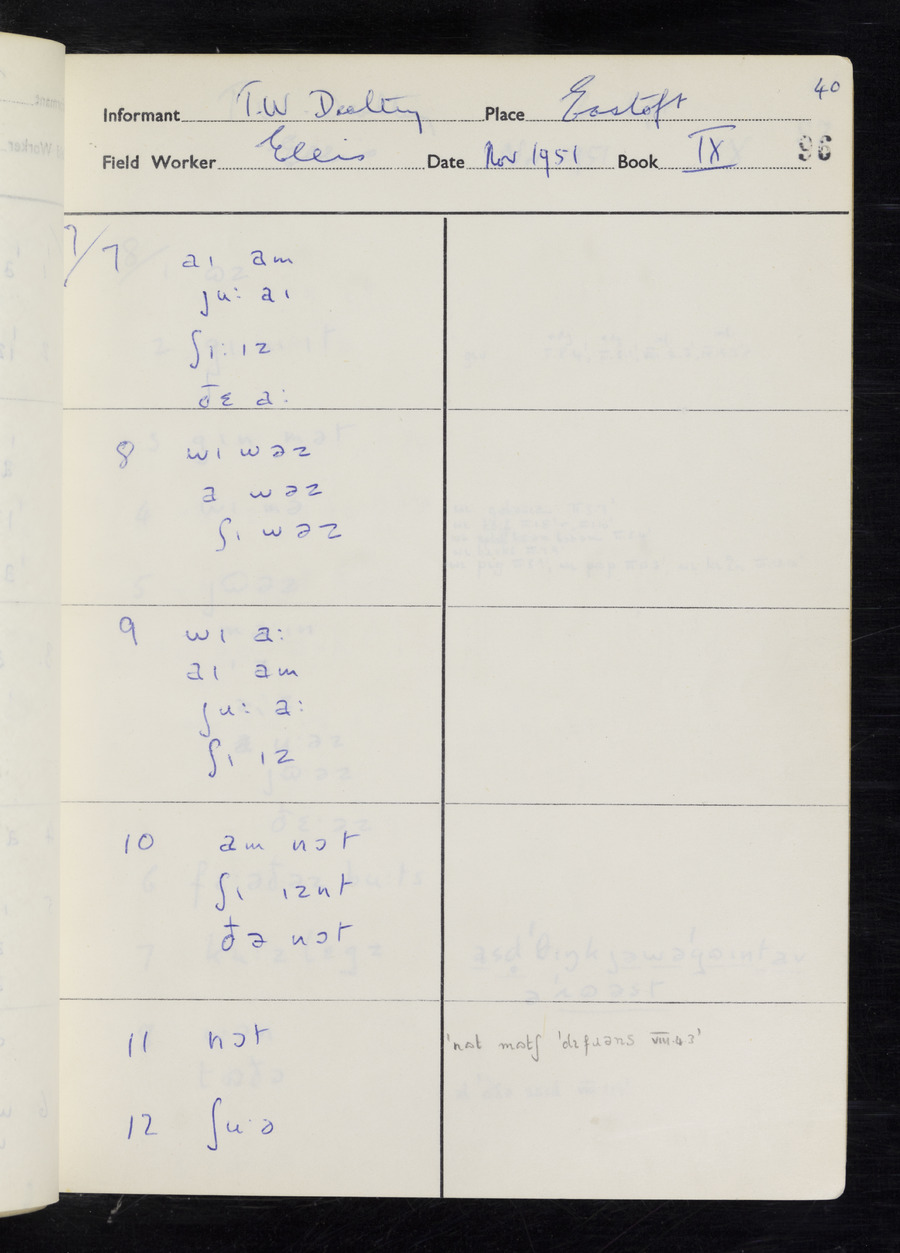 40
Informant T.W Dealtry Place Eastoft
Field Worker Ellis Date Nov 1951 Book IX 96
7/7 aɪ am
ju: aɪ
ʃɪ: ɪz
ðɛ a:
8 wɪ wəz
a wəz
ʃɪ wəz
9 wɪ a:
aɪ am
ju: a:
ʃɪ ɪz
10 am nɔt
ʃɪ ɪznt
ðə nɔt
11 nɔt 'nɒt mɒtʃ 'dɪfɹəns VIII.4.3'
12 ʃu·ə